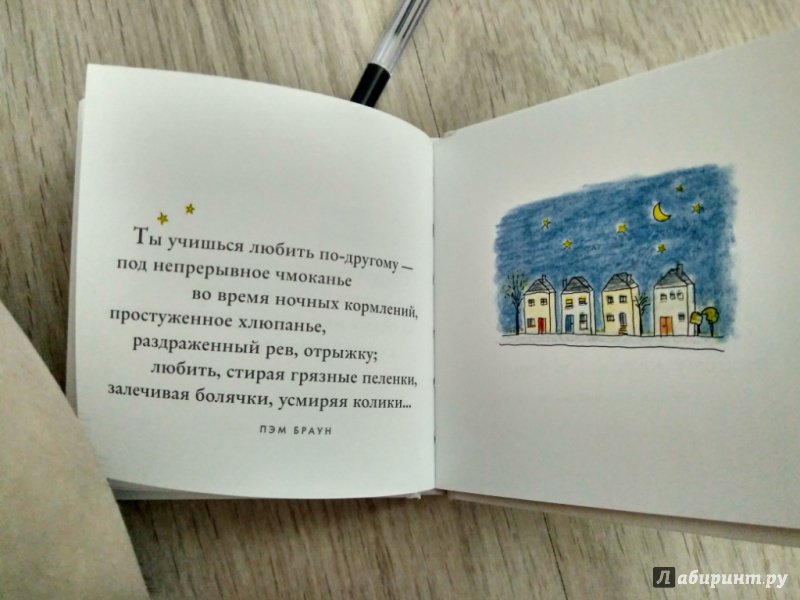 Ты учишься любить по-другому —
под непрерывное чмоканье
во время ночных кормлений,
простуженное хлюпанье,
раздраженный рев, отрыжку;
любить, стирая грязные пеленки,
залечивая болячки, усмиряя колики...
ПЭМ БРАУН
Лабиринт.ру